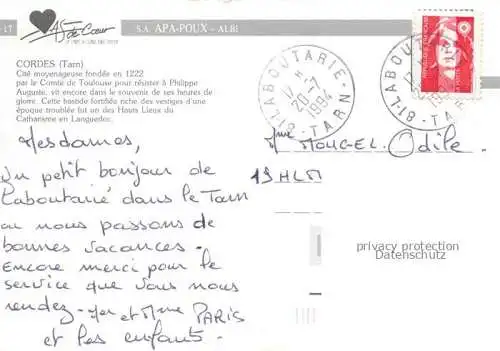 -1T
As de Cœur
S.A. APA-POUX - ALBI
CORDES (Tarn)
Cité moyenageuse fondée en 1222
par le Comte de Toulouse pour résister à Philippe
Auguste, vit encore dans le souvenir de ses heures de
gloire. Cette bastide fortifiée riche des vestiges d'une
époque troublée fut un des Hauts Lieux du
Catharisme en Languedoc.
81-LABOUTARIE-TARN
17 H
20-7
1994
81-LABOUTARIE-TARN
17 H
20-7
1994
REPUBLIQUE FRANÇAISE
LA POSTE
Mesdames,
Un petit bonjour de
Laboutarié dans le Tarn
où nous passons de
bonnes vacances.
Encore merci pour le
service que vous nous
rendez - Mr et Mme PARIS
et les enfants.
Mme MOUGEL Odile
13 HLM
privacy protection
Datenschutz